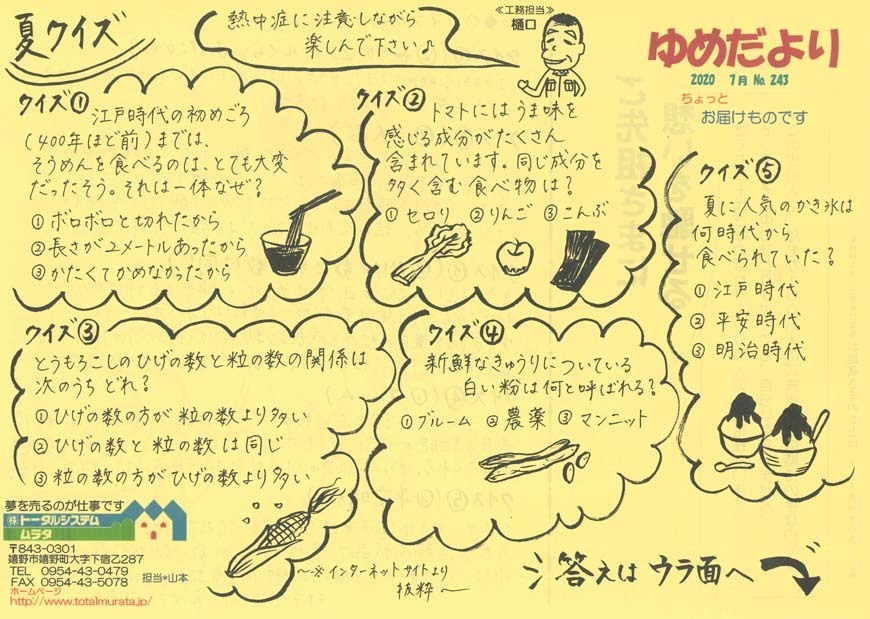 夏クイズ
熱中症に注意しながら
楽しんで下さい♪
≪工務担当≫
樋口
ゆめだより
2020 7月 No. 243
ちょっと
お届けものです
クイズ①
江戸時代の初めごろ
(400年ほど前)までは、
そうめんを食べるのは、とても大変
だったそう。それは一体なぜ?
①ボロボロと切れたから
②長さが2メートルあったから
③かたくてかめなかったから
クイズ②
トマトにはうま味を
感じる成分がたくさん
含まれています。同じ成分を
多く含む食べ物は?
①セロリ ②りんご ③こんぶ
クイズ③
とうもろこしのひげの数と粒の数の関係は
次のうちどれ?
①ひげの数の方が粒の数より多い
②ひげの数と粒の数は同じ
③粒の数の方がひげの数より多い
クイズ④
新鮮なきゅうりについている
白い粉は何と呼ばれる?
①ブルーム ②農薬 ③マンニット
クイズ⑤
夏に人気のかき氷は
何時代から
食べられていた?
①江戸時代
②平安時代
③明治時代
夢を売るのが仕事です
㈱トータルシステム
ムラタ
〒843-0301
嬉野市嬉野町大字下宿乙2​87
TEL 0954-43-0479
FAX 0954-43-5078 担当*山本
ホームページ
http://www.totalmurata.jp/
~※インターネットサイトより
抜粋~
答えはウラ面へ